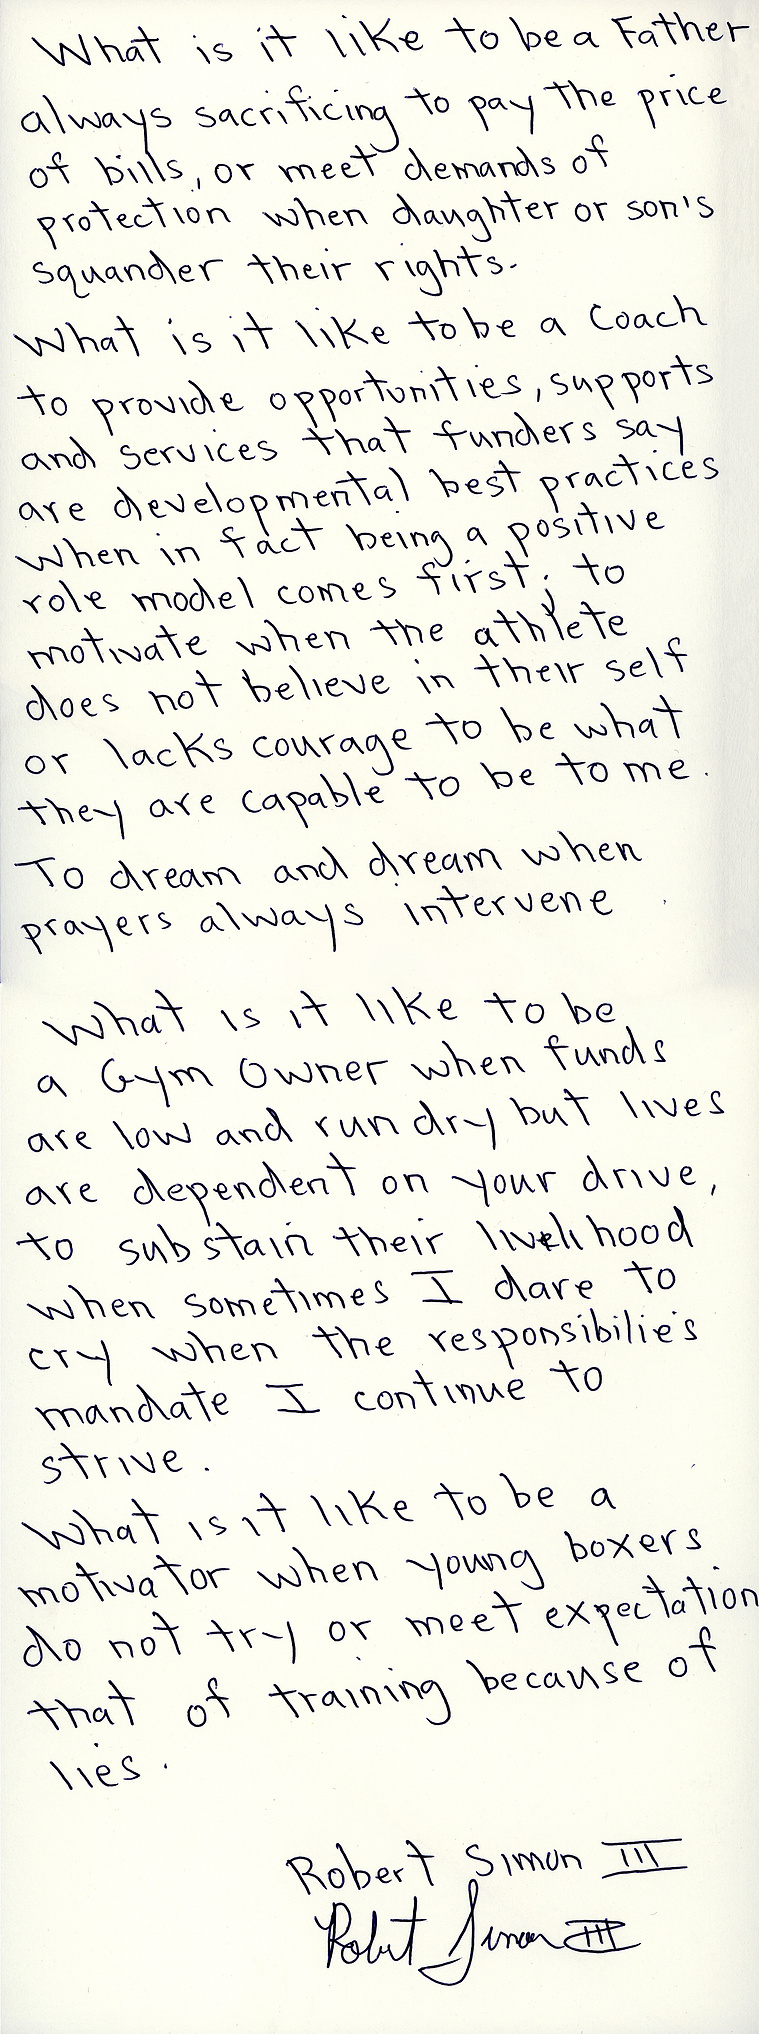 What is it like to be a Father
always sacrificing to pay the price
of bills, or meet demands of
protection when daughter or son's
squander their rights.
What is it like to be a Coach
to provide opportunities, supports
and services that funders say
are developmental best practices
when in fact being a positive
role model comes first; to
motivate when the athlete
does not believe in their self
or lacks courage to be what
they are capable to be to me.
To dream and dream when
prayers always intervene
What is it like to be
a Gym Owner when funds
are low and run dry but lives
are dependent on your drive,
to substain their livelihood
when sometimes I dare to
cry when the responsibilie's
mandate I continue to
strive.
What is it like to be a
motivator when young boxers
do not try or meet expectation
that of training because of
lies.
Robert Simon III
Robert Simon III